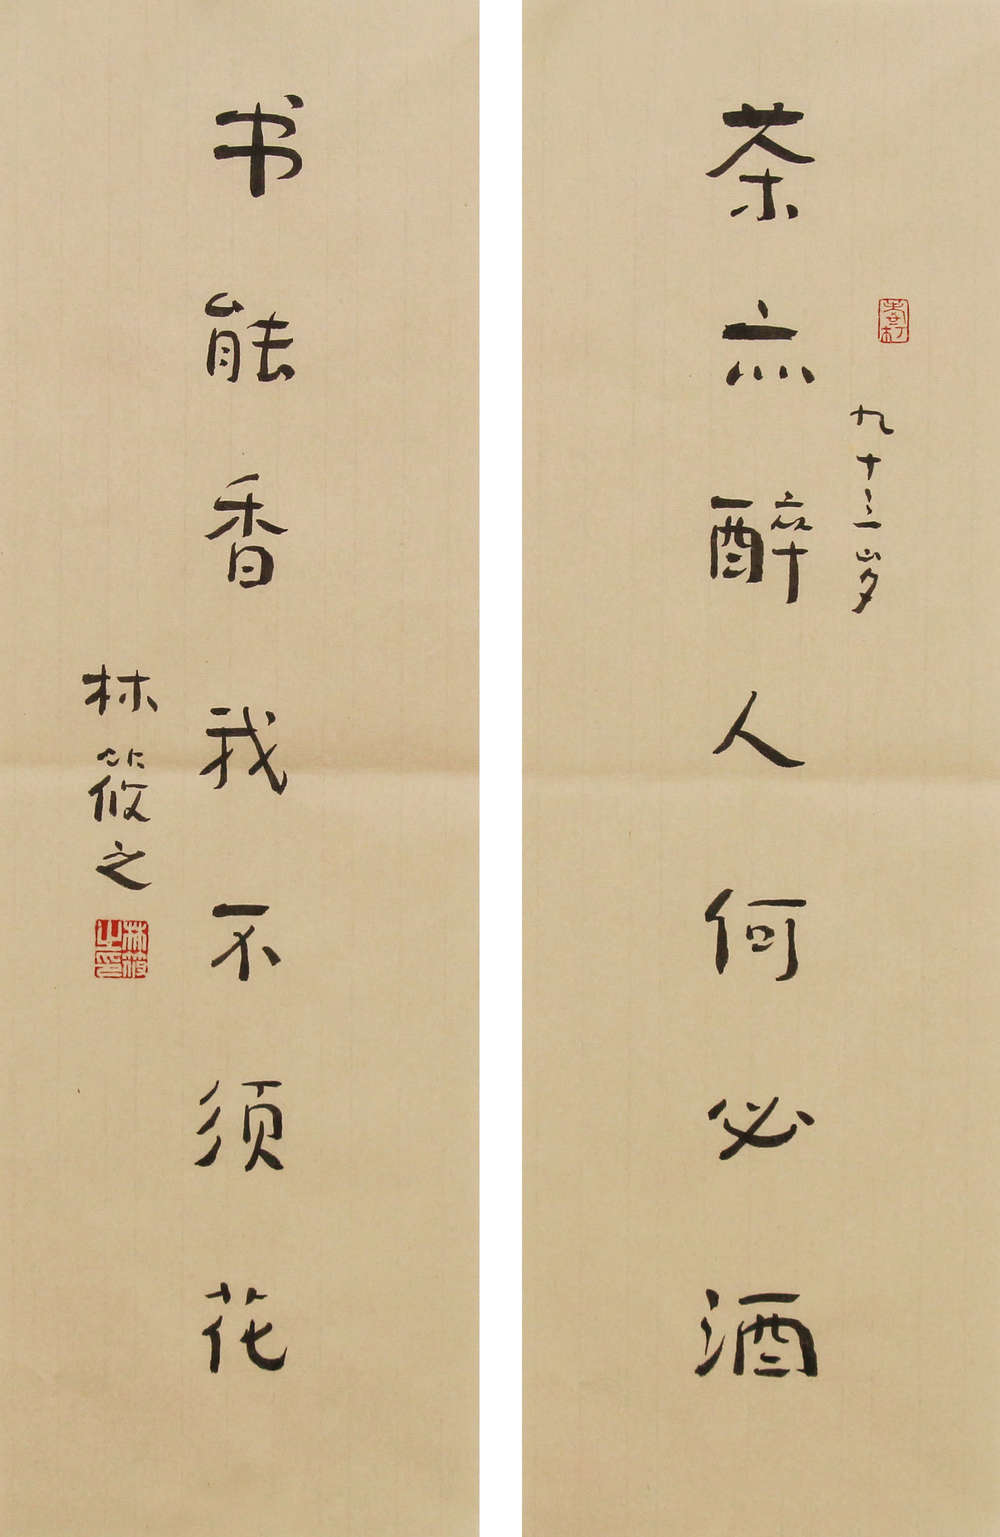 九十三岁
茶亦醉人何必酒
书能香我不须花
林筱之
林筱之印